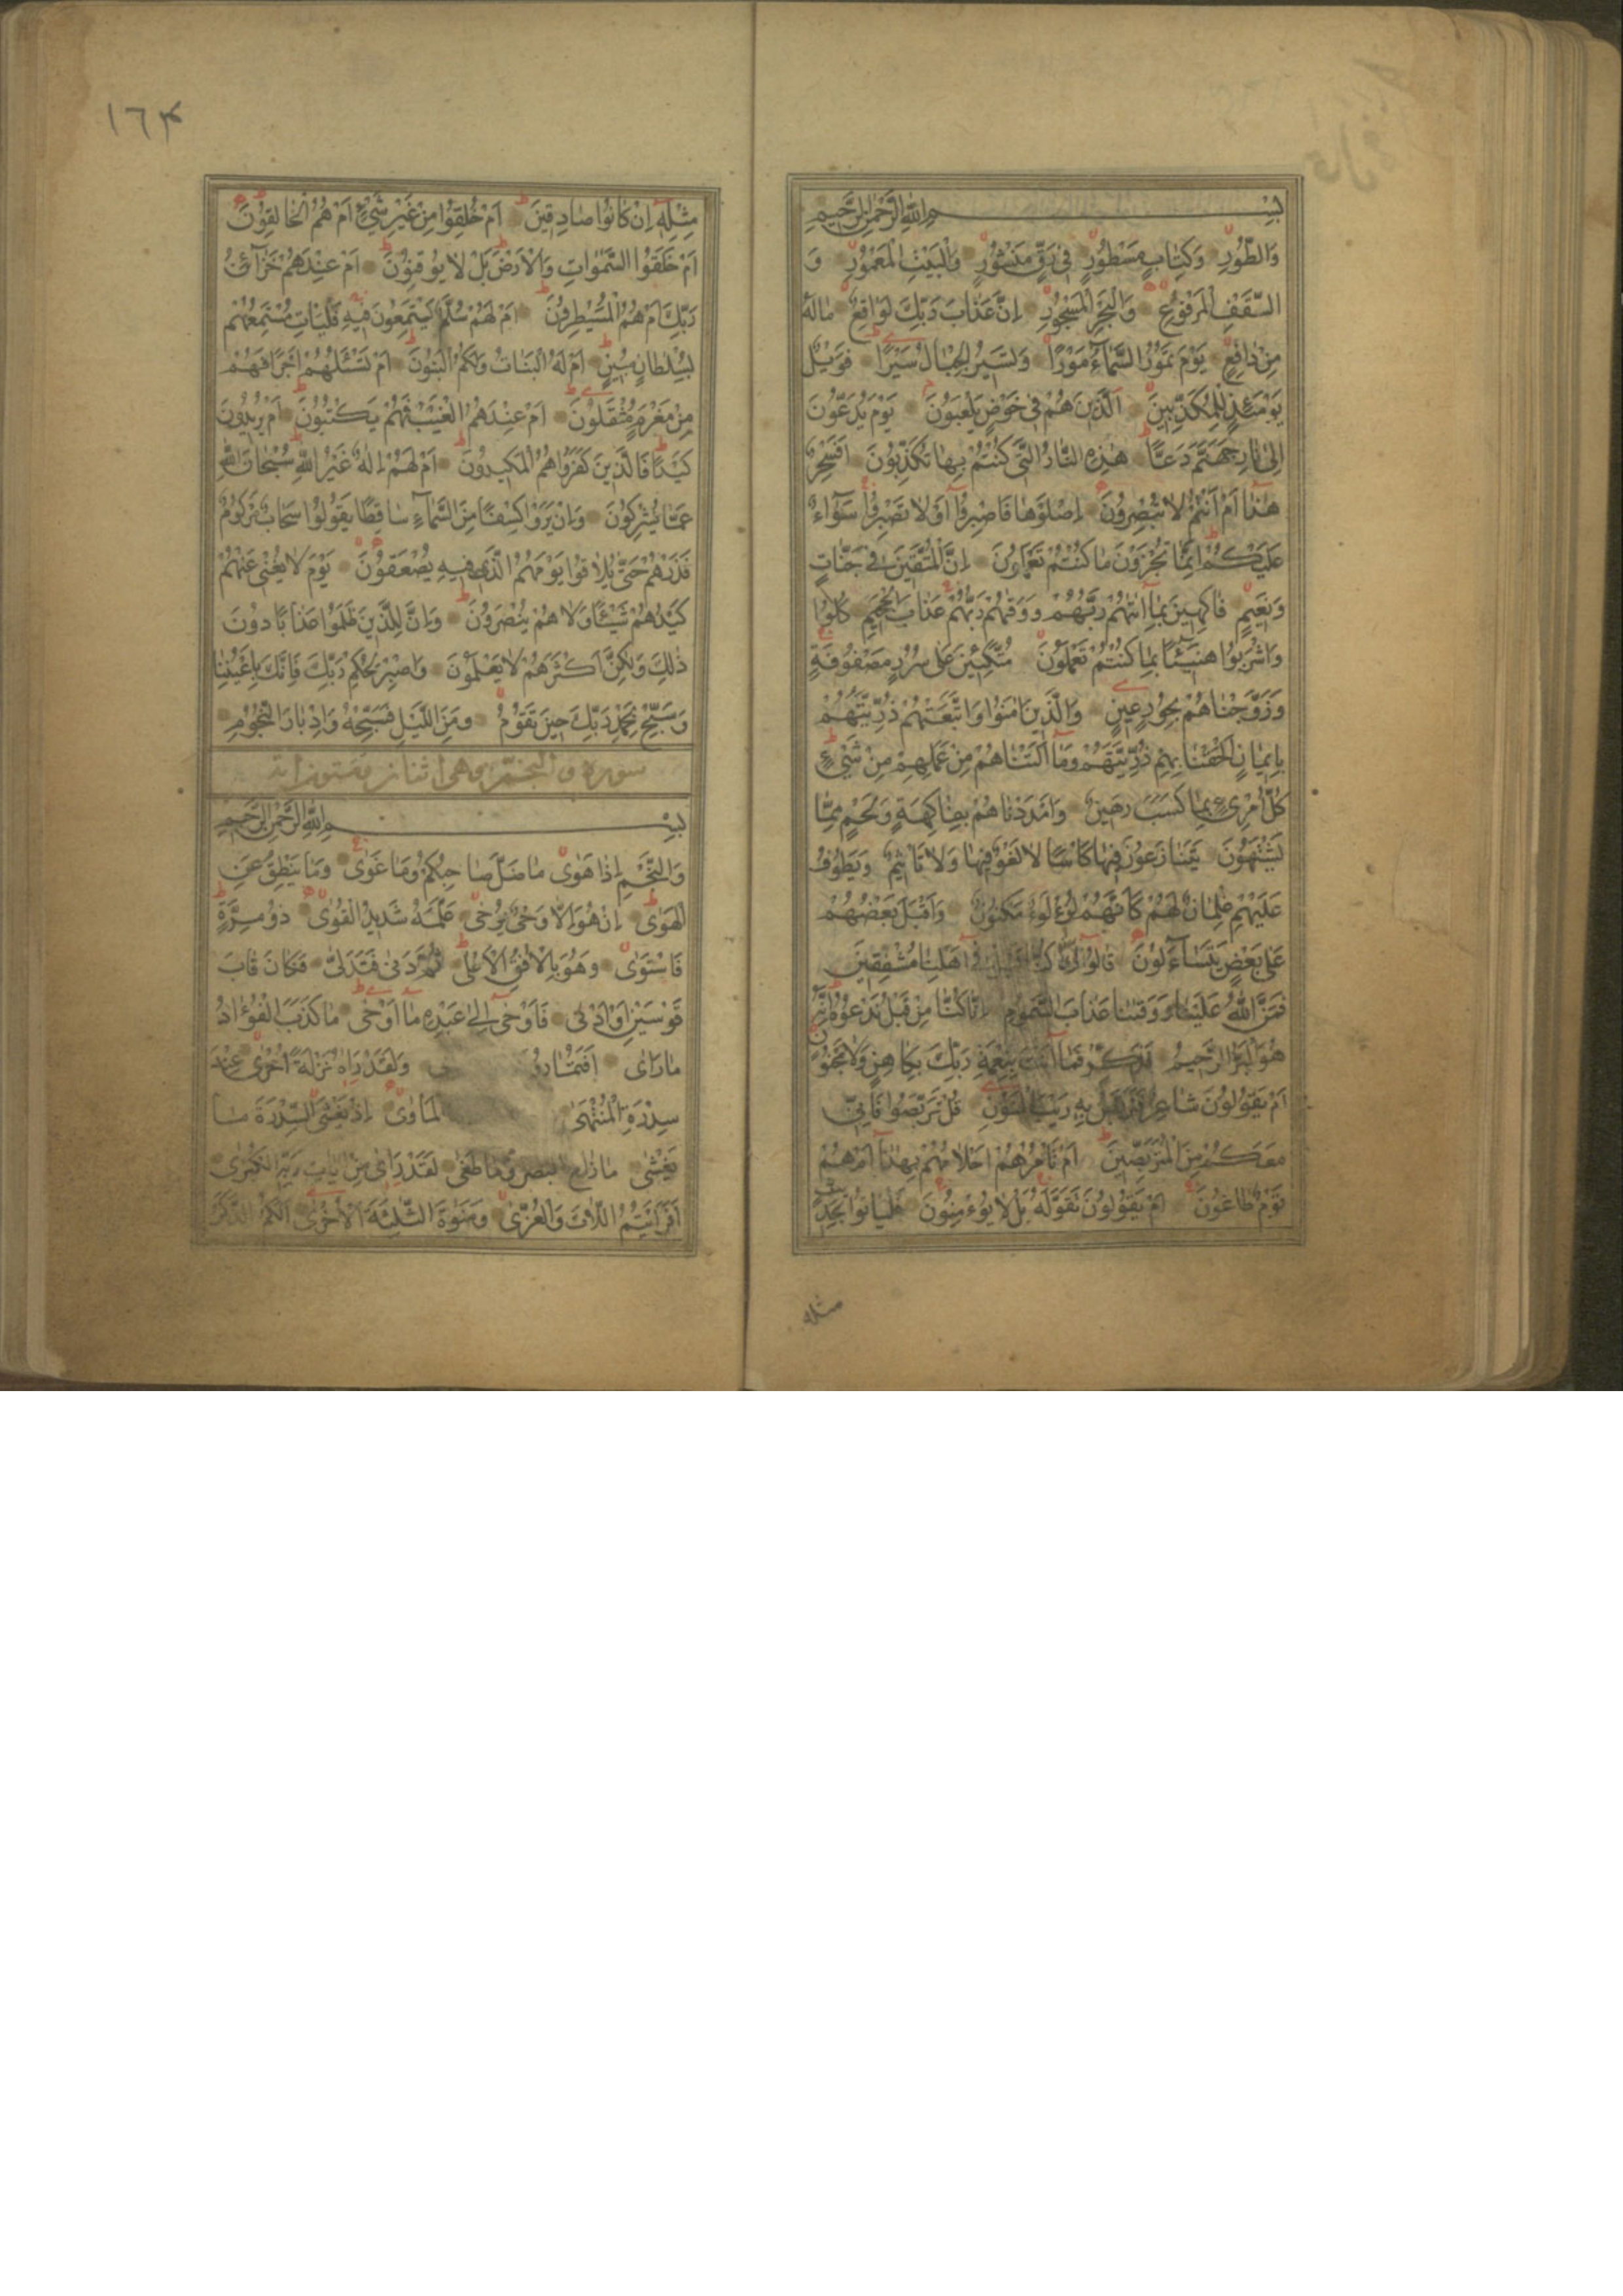 بِسْمِ اللّٰهِ الرَّحْمٰنِ الرَّحِيمِ
وَالطُّورِ وَكِتَابٍ مَسْطُورٍ فِي رَقٍّ مَنْشُورٍ وَالْبَيْتِ الْمَعْمُورِ وَ
السَّقْفِ الْمَرْفُوعِ وَالْبَحْرِ الْمَسْجُورِ اِنَّ عَذَابَ رَبِّكَ لَوَاقِعٌ مَالَهُ
مِنْ دَافِعٍ يَوْمَ تَمُورُ السَّمَآءُ مَوْرًا وَتَسِيرُ الْجِبَالُ سَيْرًا فَوَيْلٌ
يَوْمَئِذٍ لِلْمُكَذِّبِينَ اَلَّذِينَ هُمْ فِي خَوْضٍ يَلْعَبُونَ يَوْمَ يُدَعُّونَ
اِلٰى نَارِ جَهَنَّمَ دَعًّا هٰذِهِ النَّارُ الَّتِي كُنْتُمْ بِهَا تُكَذِّبُونَ اَفَسِحْرٌ
هٰذَا اَمْ اَنْتُمْ لَا تُبْصِرُونَ اِصْلَوْهَا فَاصْبِرُوا اَوْلَا تَصْبِرُوا سَوَآءٌ
عَلَيْكُمْ اِنَّمَا تُجْزَوْنَ مَا كُنْتُمْ تَعْمَلُونَ اِنَّ الْمُتَّقِينَ فِي جَنَّاتٍ
وَنَعِيمٍ فَاكِهِينَ بِمَا اٰتٰهُمْ رَبُّهُمْ وَوَقٰهُمْ رَبُّهُمْ عَذَابَ الْجَحِيمِ كُلُوا
وَاشْرَبُوا هَنِيئًا بِمَا كُنْتُمْ تَعْمَلُونَ مُتَّكِئِينَ عَلٰى سُرُرٍ مَصْفُوفَةٍ
وَزَوَّجْنَاهُمْ بِحُورٍ عِينٍ وَالَّذِينَ اٰمَنُوا وَاتَّبَعَتْهُمْ ذُرِّيَّتُهُمْ
بِاِيمَانٍ اَلْحَقْنَا بِهِمْ ذُرِّيَّتَهُمْ وَمَا اَلَتْنَاهُمْ مِنْ عَمَلِهِمْ مِنْ شَيْءٍ
كُلُّ امْرِئٍ بِمَا كَسَبَ رَهِينٌ وَاَمْدَدْنَاهُمْ بِفَاكِهَةٍ وَلَحْمٍ مِمَّا
يَشْتَهُونَ يَتَنَازَعُونَ فِيهَا كَاْسًا لَا لَغْوٌ فِيهَا وَلَا تَاْثِيمٌ وَيَطُوفُ
عَلَيْهِمْ غِلْمَانٌ لَهُمْ كَاَنَّهُمْ لُؤْلُؤٌ مَكْنُونٌ وَاَقْبَلَ بَعْضُهُمْ
عَلٰى بَعْضٍ يَتَسَآءَلُونَ قَالُوا اِنَّا كُنَّا قَبْلُ فِي اَهْلِنَا مُشْفِقِينَ
فَمَنَّ اللّٰهُ عَلَيْنَا وَوَقٰنَا عَذَابَ السَّمُومِ اِنَّا كُنَّا مِنْ قَبْلُ نَدْعُوهُ اِنَّهُ
هُوَ الْبَرُّ الرَّحِيمُ فَذَكِّرْ فَمَا اَنْتَ بِنِعْمَةِ رَبِّكَ بِكَاهِنٍ وَلَا مَجْنُونٍ
اَمْ يَقُولُونَ شَاعِرٌ نَتَرَبَّصُ بِهِ رَيْبَ الْمَنُونِ قُلْ تَرَبَّصُوا فَاِنِّي
مَعَكُمْ مِنَ الْمُتَرَبِّصِينَ اَمْ تَاْمُرُهُمْ اَحْلَامُهُمْ بِهٰذَا اَمْ هُمْ
قَوْمٌ طَاغُونَ اَمْ يَقُولُونَ تَقَوَّلَهُ بَلْ لَا يُؤْمِنُونَ فَلْيَاْتُوا بِحَدِيثٍ
مثله
١٦٣
مِثْلِهِ اِنْ كَانُوا صَادِقِينَ اَمْ خُلِقُوا مِنْ غَيْرِ شَيْءٍ اَمْ هُمُ الْخَالِقُونَ
اَمْ خَلَقُوا السَّمٰوَاتِ وَالْاَرْضَ بَلْ لَا يُوقِنُونَ اَمْ عِنْدَهُمْ خَزَآئِنُ
رَبِّكَ اَمْ هُمُ الْمُصَيْطِرُونَ اَمْ لَهُمْ سُلَّمٌ يَسْتَمِعُونَ فِيهِ فَلْيَاْتِ مُسْتَمِعُهُمْ
بِسُلْطَانٍ مُبِينٍ اَمْ لَهُ الْبَنَاتُ وَلَكُمُ الْبَنُونَ اَمْ تَسْئَلُهُمْ اَجْرًا فَهُمْ
مِنْ مَغْرَمٍ مُثْقَلُونَ اَمْ عِنْدَهُمُ الْغَيْبُ فَهُمْ يَكْتُبُونَ اَمْ يُرِيدُونَ
كَيْدًا فَالَّذِينَ كَفَرُوا هُمُ الْمَكِيدُونَ اَمْ لَهُمْ اِلٰهٌ غَيْرُ اللّٰهِ سُبْحَانَ اللّٰهِ
عَمَّا يُشْرِكُونَ وَاِنْ يَرَوْا كِسْفًا مِنَ السَّمَآءِ سَاقِطًا يَقُولُوا سَحَابٌ مَرْكُومٌ
فَذَرْهُمْ حَتّٰى يُلَاقُوا يَوْمَهُمُ الَّذِي فِيهِ يُصْعَقُونَ يَوْمَ لَا يُغْنِي عَنْهُمْ
كَيْدُهُمْ شَيْئًا وَلَا هُمْ يُنْصَرُونَ وَاِنَّ لِلَّذِينَ ظَلَمُوا عَذَابًا دُونَ
ذٰلِكَ وَلٰكِنَّ اَكْثَرَهُمْ لَا يَعْلَمُونَ وَاصْبِرْ لِحُكْمِ رَبِّكَ فَاِنَّكَ بِاَعْيُنِنَا
وَسَبِّحْ بِحَمْدِ رَبِّكَ حِينَ تَقُومُ وَمِنَ اللَّيْلِ فَسَبِّحْهُ وَاِدْبَارَ النُّجُومِ
سورة والنجم وهى اثنان وستون اية
بِسْمِ اللّٰهِ الرَّحْمٰنِ الرَّحِيمِ
وَالنَّجْمِ اِذَا هَوٰى مَا ضَلَّ صَاحِبُكُمْ وَمَا غَوٰى وَمَا يَنْطِقُ عَنِ
الْهَوٰى اِنْ هُوَ اِلَّا وَحْيٌ يُوحٰى عَلَّمَهُ شَدِيدُ الْقُوٰى ذُو مِرَّةٍ
فَاسْتَوٰى وَهُوَ بِالْاُفُقِ الْاَعْلٰى ثُمَّ دَنٰى فَتَدَلّٰى فَكَانَ قَابَ
قَوْسَيْنِ اَوْ اَدْنٰى فَاَوْحٰى اِلٰى عَبْدِهِ مَا اَوْحٰى مَا كَذَبَ الْفُؤَادُ
مَا رَاٰى اَفَتُمَارُو ى وَلَقَدْ رَاٰهُ نَزْلَةً اُخْرٰى عِنْدَ
سِدْرَةِ الْمُنْتَهٰى لْمَاْوٰى اِذْ يَغْشَى السِّدْرَةَ مَا
يَغْشٰى مَا زَاغَ الْبَصَرُ وَمَا طَغٰى لَقَدْ رَاٰى مِنْ اٰيَاتِ رَبِّهِ الْكُبْرٰى
اَفَرَاَيْتُمُ اللَّاتَ وَالْعُزّٰى وَمَنٰوةَ الثَّالِثَةَ الْاُخْرٰى اَلَكُمُ الذَّكَرُ